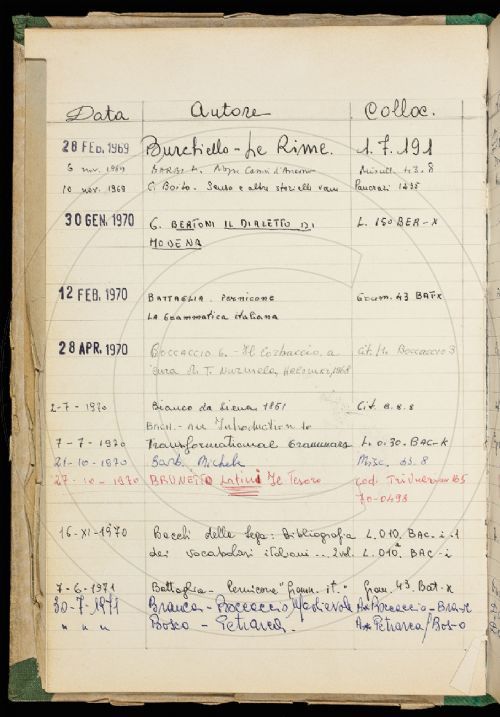 Data Autore Colloc.
28 FEB. 1969 Burchiello - Le Rime. 1.7.191
6 nov. 1969 BARBI M. Canz. d'Ancona Miscell. 43.8
10 nov. 1969 C. Boito. Senso e altre storielle vane Pancrazi 1235
30 GEN. 1970 G. BERTONI IL DIALETTO DI L. 150 BER-X
MODENA
12 FEB. 1970 BATTAGLIA. Pernicone Gram. 43 BAT-X
LA Grammatica italiana
28 APR. 1970 BOCCACCIO G. - Il Corbaccio, a Cit. Boccaccio 3
cura di T. Nurmela, Helsinki, 1968
2-7-1970 Bianco da Siena 1851 Cit. 8.8.8
BACH - An Introduction to
7-7-1970 Transformational Grammars L. 0.30. BAC-K
21-10-1970 Barbi Michele Misc. 33.8
27-10-1970 BRUNETTO Latini Il Tesoro cod. Trivulziano 165
70-0498
16-XI-1970 Bacchi della Lega: Bibliografia L. 010. BAC-i-1
dei vocabolari italiani ... 2 vol. L. 010. BAC-i
7-6-1971 Battaglia - Pernicone "Gramm. it." Gram. 43. Bat-X
30-7-1971 Branca - Boccaccio Medievale A* Boccaccio - Bra-X
" " " Bosco - Petrarca. A* Petrarca/Bos-O